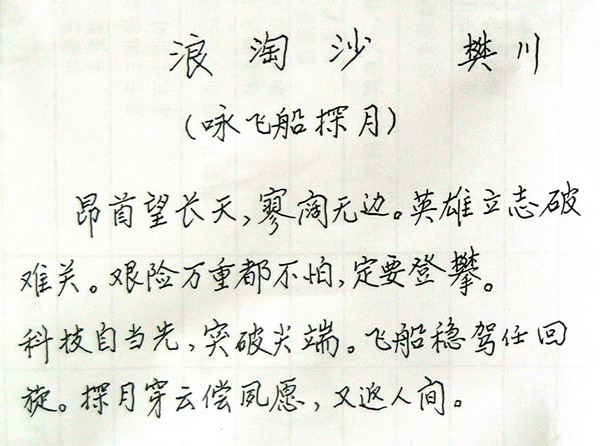 浪淘沙 樊川
(咏飞船探月)
昂首望长天,寥阔无边。英雄立志破
难关。艰险万重都不怕,定要登攀。
科技自当先,突破尖端。飞船稳驾任回
旋。探月穿云偿夙愿,又返人间。